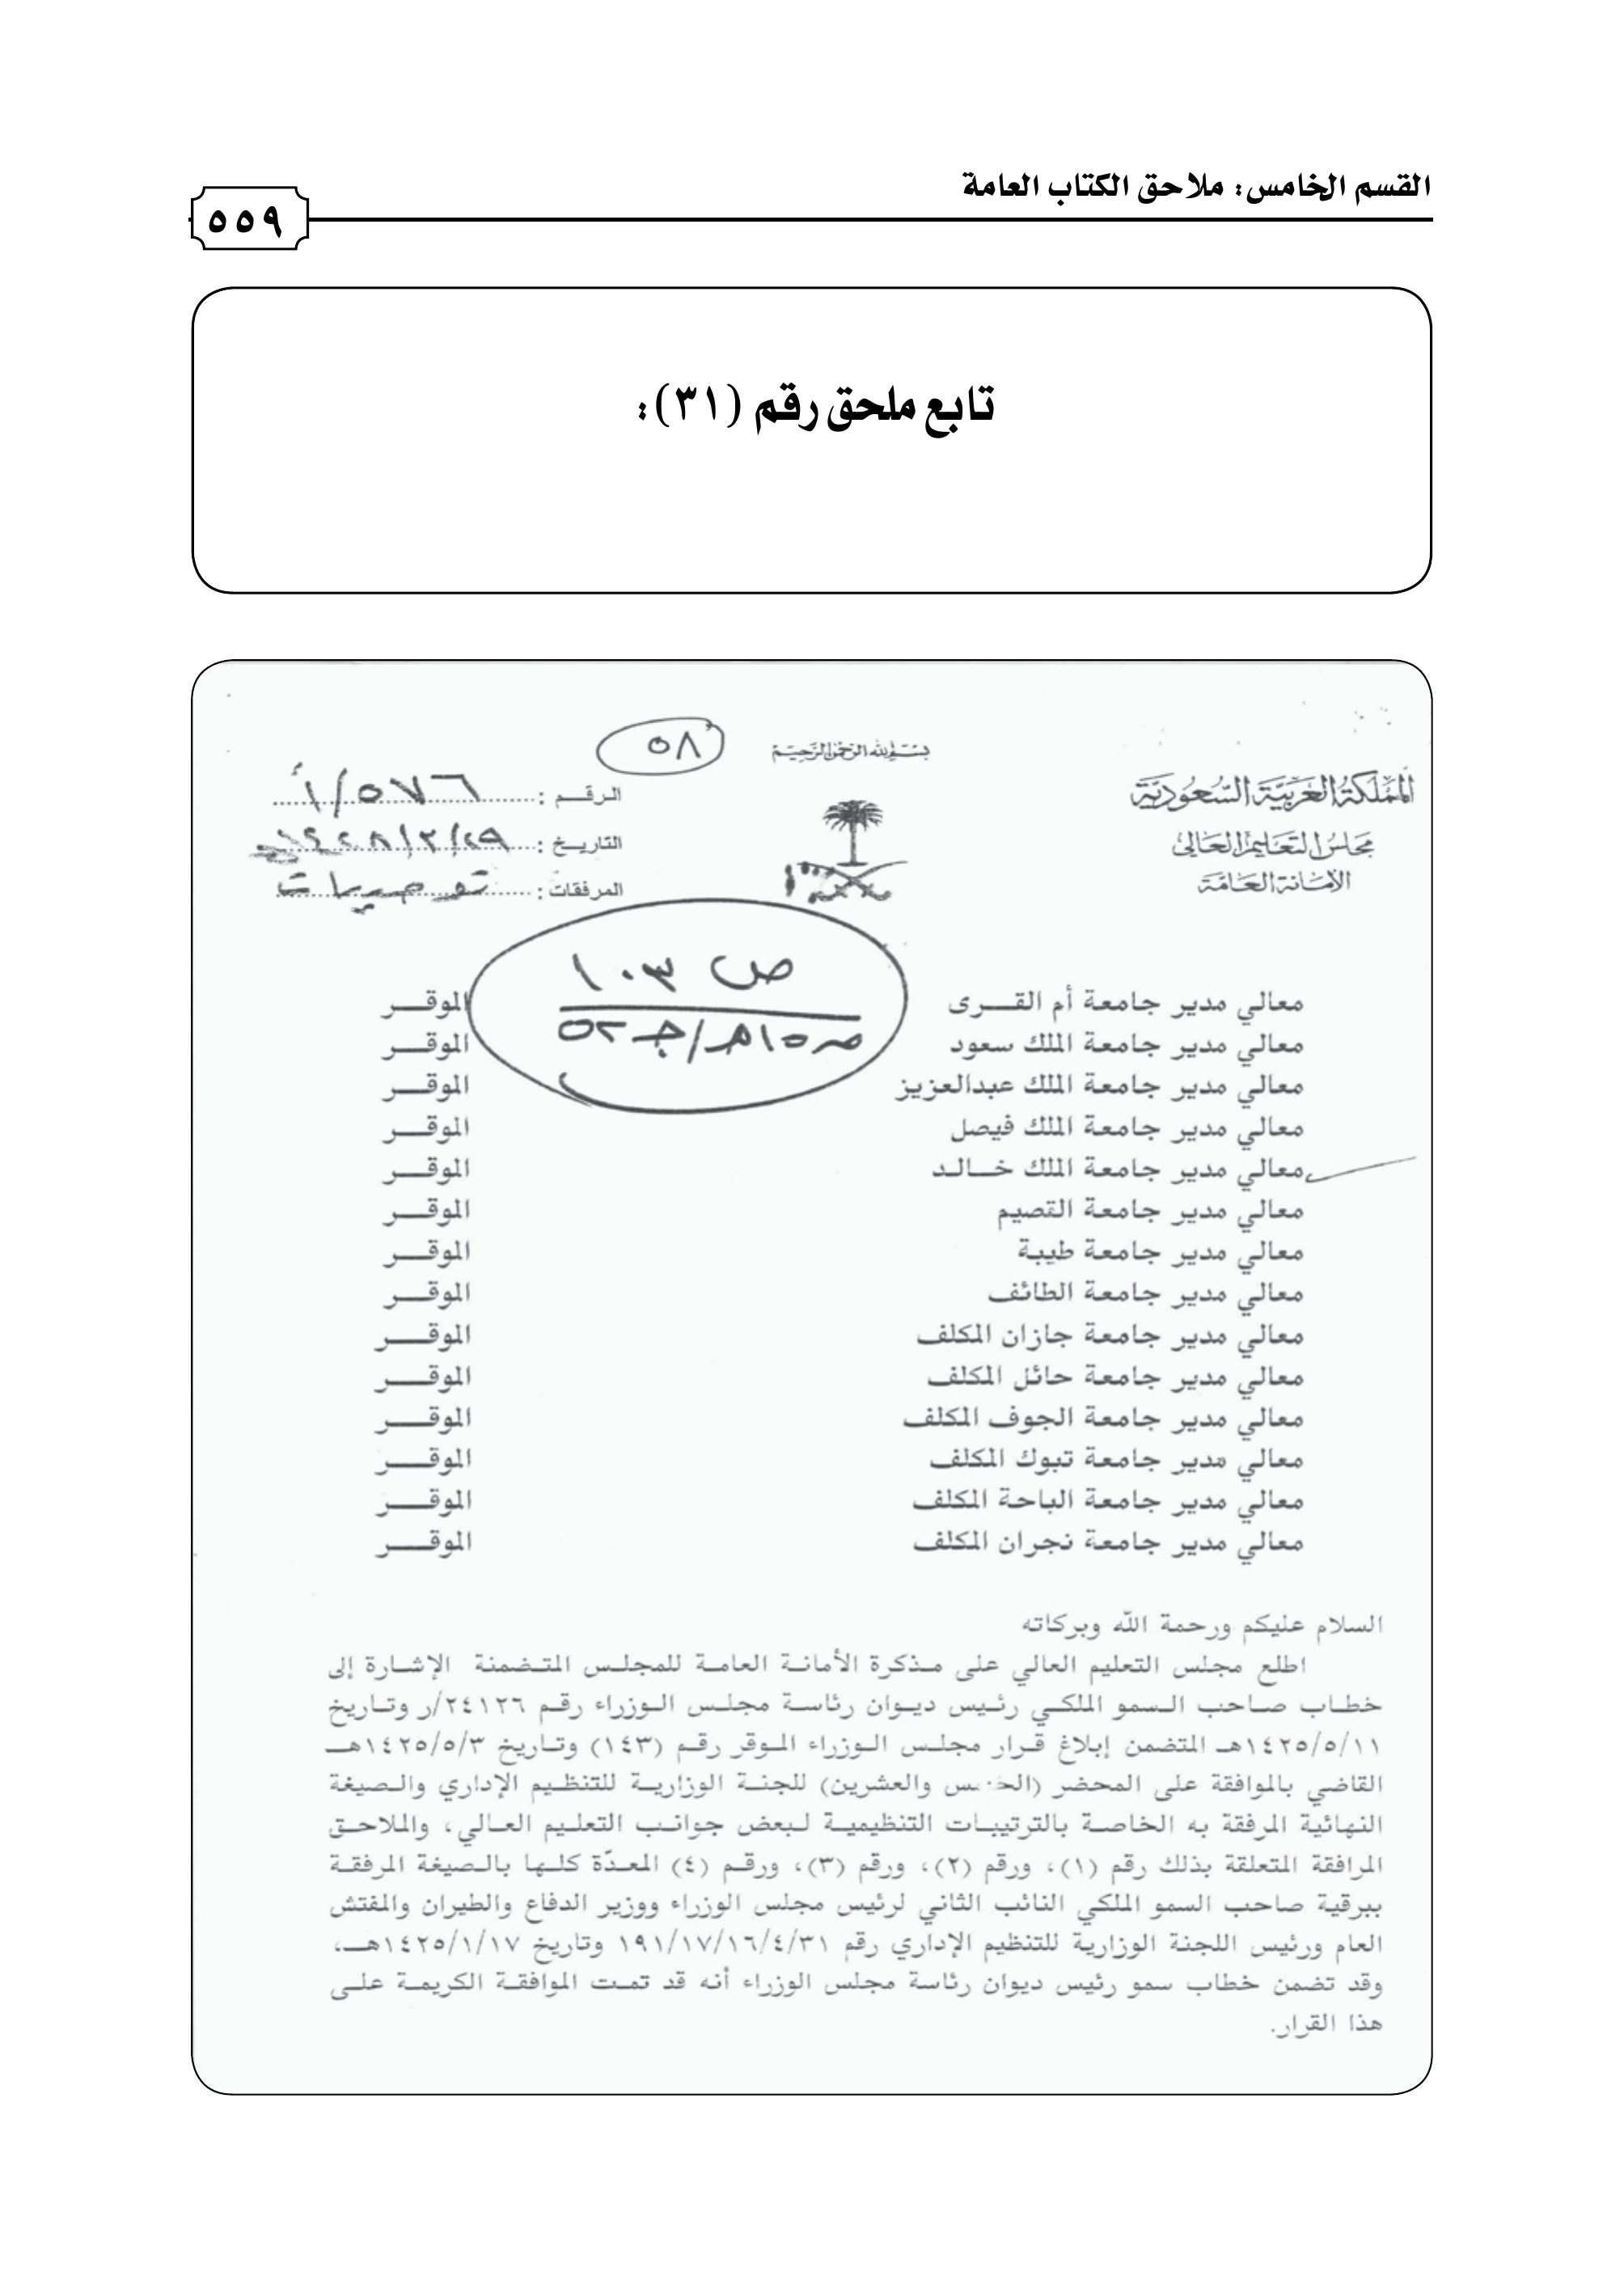 القسم الخامس: ملاحق الكتاب العامة
٥٥٩
تابع ملحق رقم (٣١):
٥٨
بسم الله الرحمن الرحيم
المملكة العربية السعودية
مجلس التعليم العالي
الأمانة العامة
الرقـــم : ٥٧٦/أ
التاريـخ :
المرفقات :
ص ١٠٣
معالي مدير جامعة أم القـــرى الموقـــر
معالي مدير جامعة الملك سعود الموقـــر
معالي مدير جامعة الملك عبدالعزيز الموقـــر
معالي مدير جامعة الملك فيصل الموقـــر
معالي مدير جامعة الملك خـــالـد الموقـــر
معالي مدير جامعة القصيم الموقـــر
معالي مدير جامعة طيبة الموقـــر
معالي مدير جامعة الطائف الموقـــر
معالي مدير جامعة جازان المكلف الموقـــر
معالي مدير جامعة حائل المكلف الموقـــر
معالي مدير جامعة الجوف المكلف الموقـــر
معالي مدير جامعة تبوك المكلف الموقـــر
معالي مدير جامعة الباحة المكلف الموقـــر
معالي مدير جامعة نجران المكلف الموقـــر
السلام عليكم ورحمة الله وبركاته
اطلع مجلس التعليم العالي على مـذكرة الأمانـة العامـة للمجلـس المتـضمنة الإشـارة إلى
خطـاب صـاحب الـسمو الملكـي رئـيس ديـوان رئاسـة مجلـس الـوزراء رقـم ٢٤١٢٦/ر وتـاريخ
١٤٢٥/٥/١١هـ المتضمن إبلاغ قـرار مجلـس الـوزراء المـوقر رقـم (١٤٣) وتـاريخ ١٤٢٥/٥/٣هـــ
القاضي بالموافقة على المحضر (الخامس والعشرين) للجنـة الوزاريـة للتنظـيم الإداري والـصيغة
النهائية المرفقة به الخاصـة بالترتيبـات التنظيميـة لـبعض جوانـب التعلـيم العـالي، والملاحـق
المرافقة المتعلقة بذلك رقم (١)، ورقم (٢)، ورقم (٣)، ورقـم (٤) المعـدّة كلـها بالـصيغة المرفقـة
ببرقية صاحب السمو الملكي النائب الثاني لرئيس مجلس الوزراء ووزير الدفاع والطيران والمفتش
العام ورئيس اللجنة الوزارية للتنظيم الإداري رقم ١٩١/١٧/١٦/٤/٣١ وتاريخ ١٤٢٥/١/١٧هـــ،
وقد تضمن خطاب سمو رئيس ديوان رئاسة مجلس الوزراء أنـه قد تمـت الموافقـة الكريمـة علـى
هذا القرار.